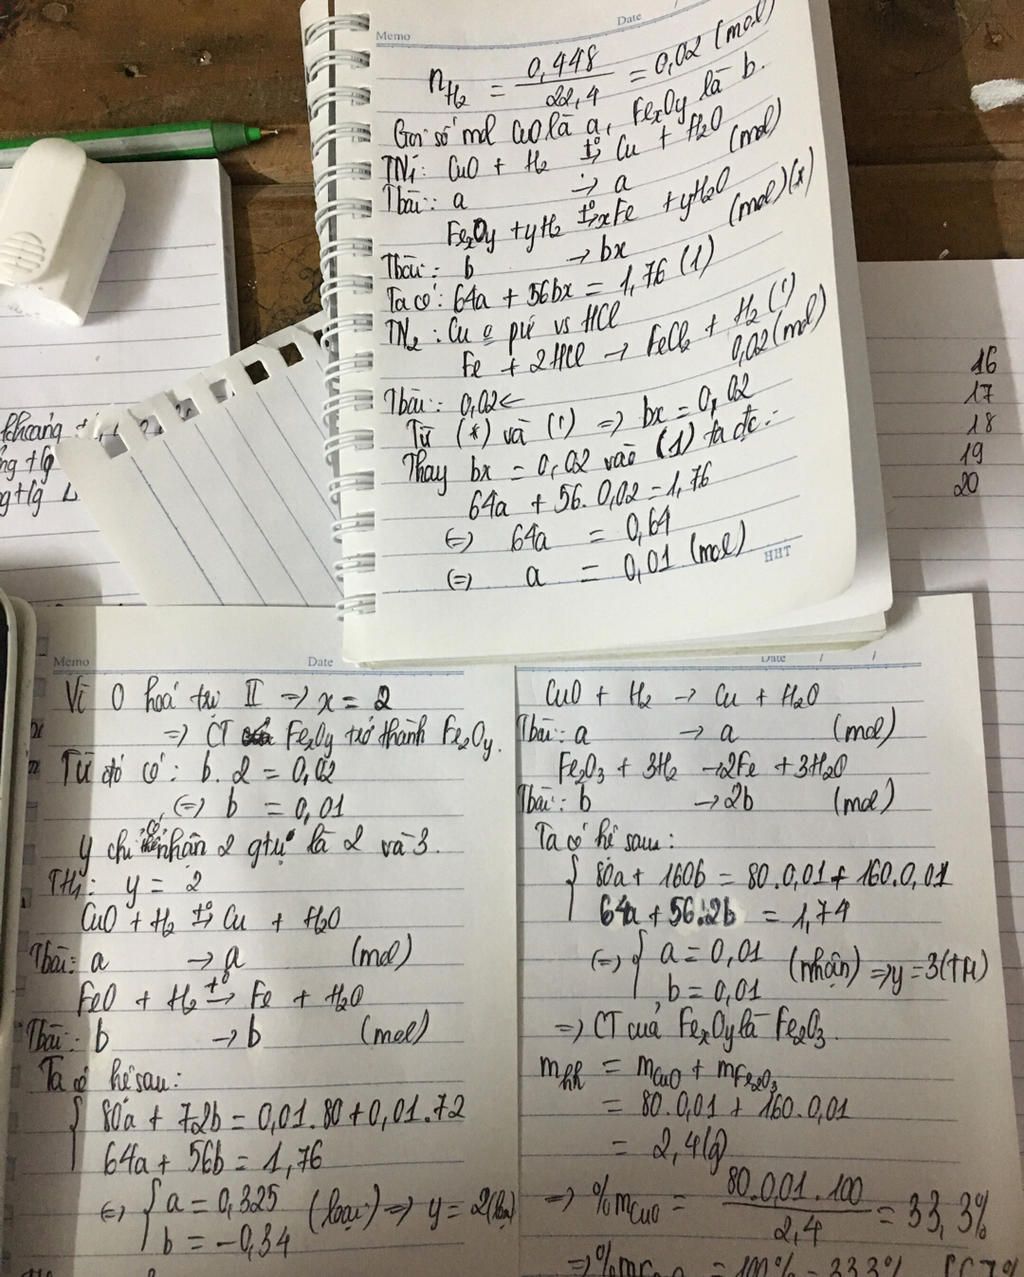 Memo
Date /
nH2 = 0,448 / 22,4 = 0,02 (mol)
Gọi số mol CuO là a, FexOy là b.
TN1: CuO + H2 t°→ Cu + H2O
Tbài: a → a (mol)
FexOy + yH2 t°→ xFe + yH2O
Tbài: b → bx (mol) (*)
Ta có: 64a + 56bx = 1,76 (1)
TN2: Cu o pứ vs HCl
Fe + 2HCl → FeCl2 + H2 (')
Tbài: 0,02 ← 0,02 (mol)
Từ (*) và (') => bx = 0,02
Thay bx = 0,02 vào (1) ta đc:
64a + 56.0,02 = 1,76
<=> 64a = 0,64
<=> a = 0,01 (mol)
HHT
khoáng
+lg
+lg
16
17
18
19
20
Memo
Date
Vì O hoá trị II => x = 2
=> CT FexOy trở thành Fe2Oy.
Từ đó có: b.2 = 0,02
<=> b = 0,01
y chỉ có nhận 2 gtrị là 2 và 3.
TH1: y = 2
CuO + H2 t°→ Cu + H2O
Tbài: a → a (mol)
FeO + H2 t°→ Fe + H2O
Tbài: b → b (mol)
Ta có hê sau:
80a + 72b = 0,01.80 + 0,01.72
64a + 56b = 1,76
<=> { a = 0,325 (loại) => y = 2 (loại)
b = -0,34
Date / /
CuO + H2 → Cu + H2O
Tbài: a → a (mol)
Fe2O3 + 3H2 → 2Fe + 3H2O
Tbài: b → 2b (mol)
Ta có hê sau:
80a + 160b = 80.0,01 + 160.0,01
64a + 56.2b = 1,74
<=> { a = 0,01 (nhận) => y = 3 (TM)
b = 0,01
=> CT của FexOy là Fe2O3.
mhh = mCuO + mFe2O3
= 80.0,01 + 160.0,01
= 2,4(g)
=> %mCuO = 80.0,01.100 / 2,4 = 33,3%
=> %m = 100% - 33,3%